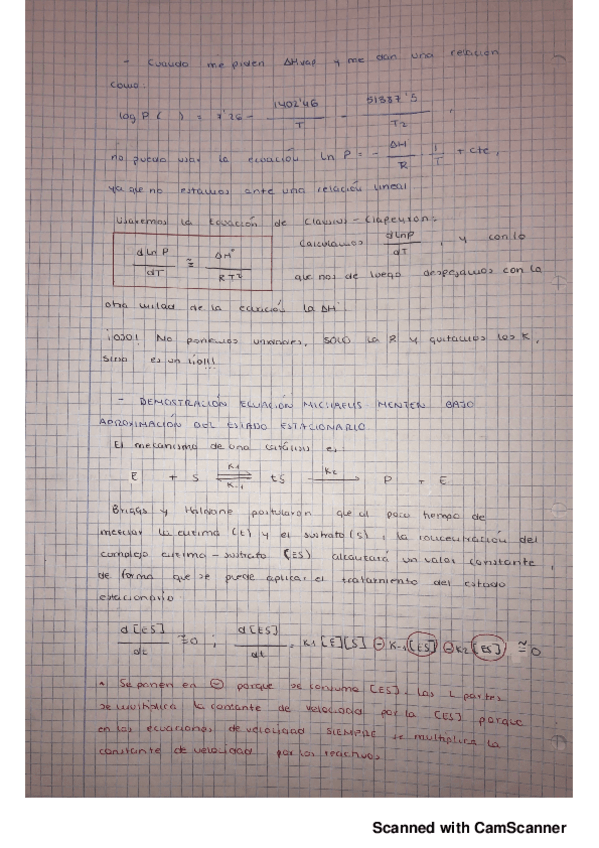 - Cuando me piden ΔHvap y me dan una relación
como:
log P ( ) = 7'26 - 1402'46/T - 51387'5/T2 ,
no puedo usar la ecuación ln P = - ΔH/R · 1/T + cte,
ya que no estamos ante una relación lineal
Usaremos la Ecuación de Clausius-Clapeyron:
d ln P/dT ≅ ΔH°/RT² Calculamos dlnP/dT , y con lo
que nos de luego despejamos con la
otra mitad de la ecuación la ΔH
¡OJO! No ponemos unidades, SOLO la R y quitamos los K,
sino es un lío!!!
- DEMOSTRACIÓN ECUACIÓN MICHAELIS MENTEN BAJO
APROXIMACIÓN DEL ESTADO ESTACIONARIO
El mecanismo de una catálisis es:
E + S ⇌ ES → P + E
K1 K-1 K2
Briggs y Haldane postularon que al poco tiempo de
mezclar la enzima (E) y el sustrato (S), la concentración del
complejo enzima - sustrato (ES) alcanzará un valor constante,
de forma que se puede aplicar el tratamiento del estado
estacionario
d[ES]/dt ≅ 0 ; d[ES]/dt = K1 [E][S] ⊖ K-1 [ES] ⊖ K2 [ES] ≅ 0
* Se ponen en ⊖ porque se consume [ES]. Las 2 partes
se multiplica la constante de velocidad por la [ES] porque
en las ecuaciones de velocidad SIEMPRE se multiplica la
constante de velocidad por los reactivos
Scanned with CamScanner